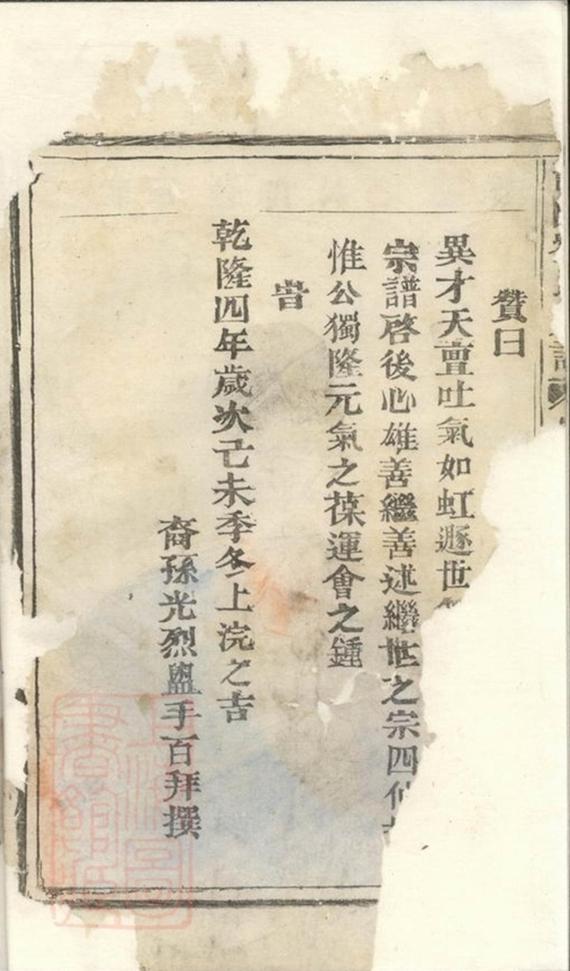 贊曰
異才天亶吐氣如虹遯世
宗譜啓後心雄善繼善述繼世之宗四仲
惟公獨隆元氣之葆運會之鍾
旹
乾隆四年歲次己未季冬上浣之吉
裔孫光烈盥手百拜撰